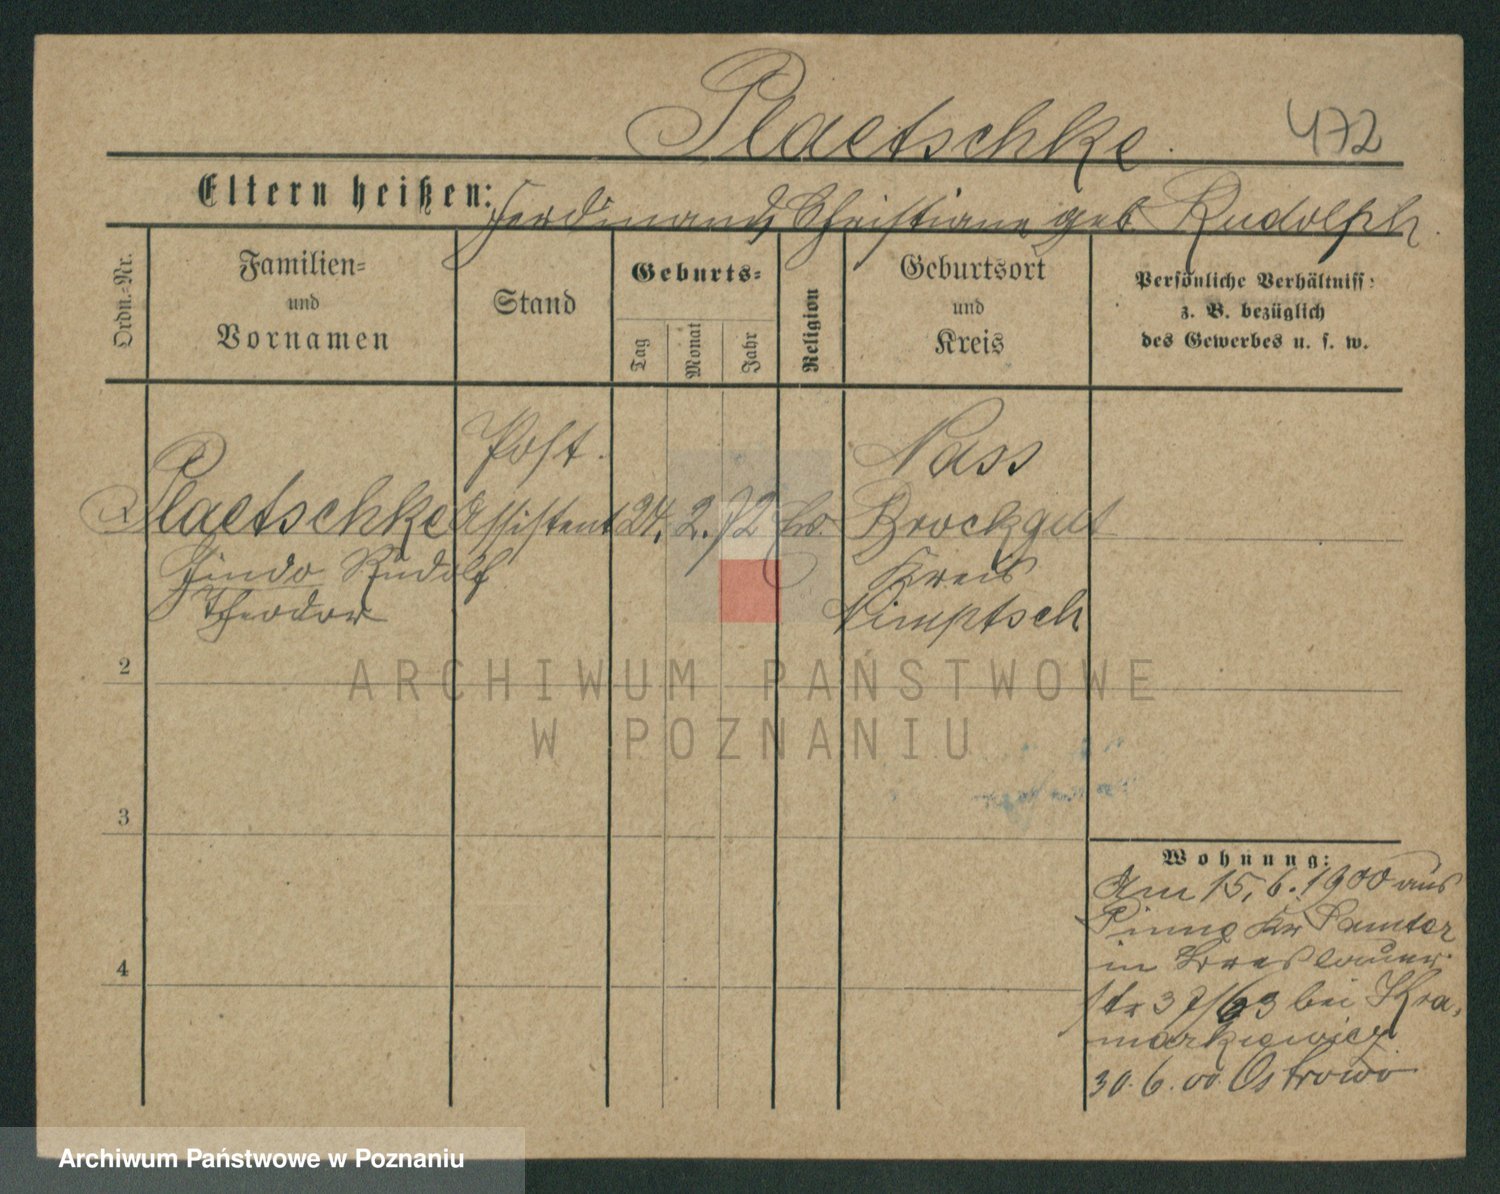 Plaetschke. 472
Eltern heißen: Ferdinand, Christiane geb Rudolph.
Ordn.-Nr.
Familien-
und
Vornamen
Stand
Geburts-
Tag
Monat
Jahr
Religion
Geburtsort
und
Kreis
Persönliche Verhältniss:
z. B. bezüglich
des Gewerbes u. s. w.
Plaetschke
Rudolf
Theodor
Post.
Assistent
24. 2. 72 ev.
Nass
Brockgut
Kreis
Nimptsch
2
3
4
Wohnung:
Am 15.6.1900 aus
Pinne Kr Samter
in Breslauer
str 37/63 bei Kra-
markiewicz
30.6.00 Ostrowo
ARCHIWUM PAŃSTWOWE
W POZNANIU
Archiwum Państwowe w Poznaniu